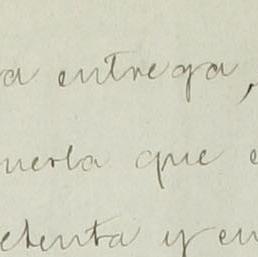 a entrega,
uerla que e
etenta y en